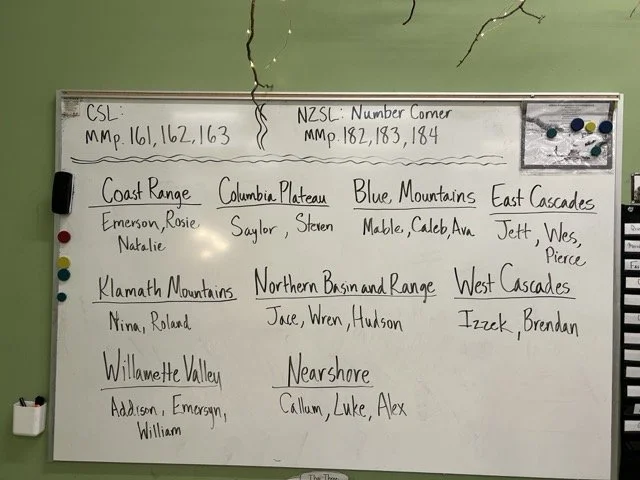 CSL:
MMp. 161, 162, 163
NZSL: Number Corner
MMp. 182, 183, 184
Coast Range
Emerson, Rosie,
Natalie
Columbia Plateau
Saylor, Steven
Blue Mountains
Mable, Caleb, Ava
East Cascades
Jett, Wes,
Pierce
Klamath Mountains
Nina, Roland
Northern Basin and Range
Jace, Wren, Hudson
West Cascades
Izzek, Brendan
Willamette Valley
Addison, Emersyn,
William
Nearshore
Callum, Luke, Alex